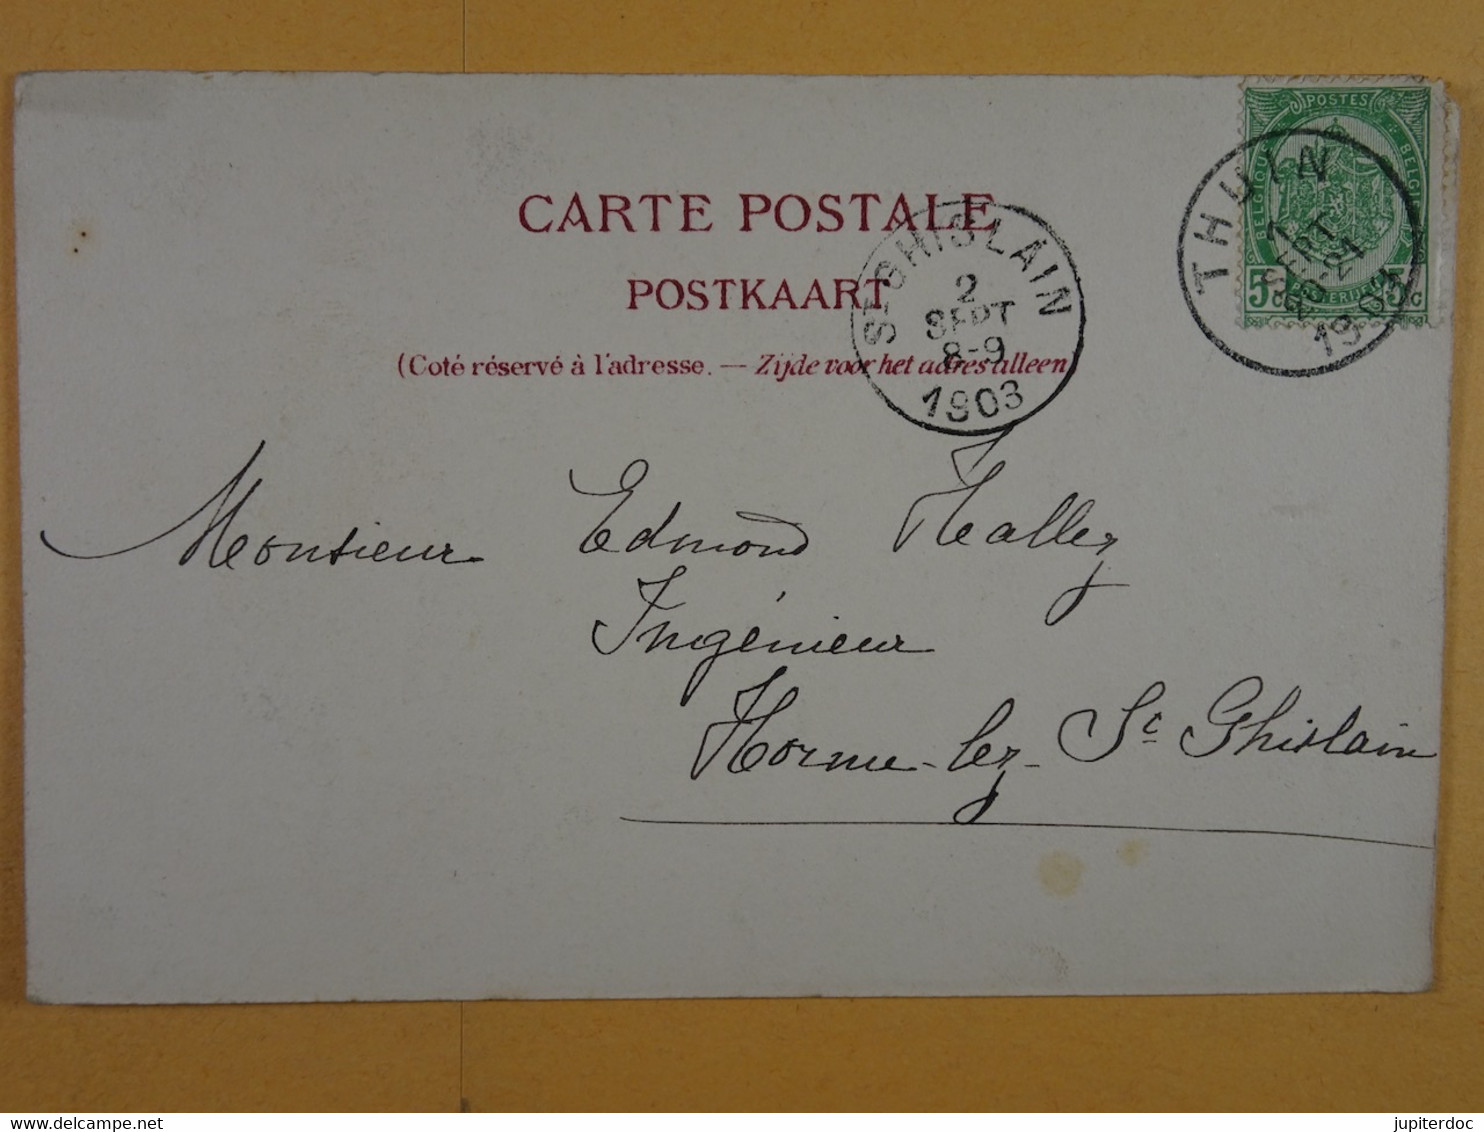 CARTE POSTALE
POSTKAART
(Coté réservé à l'adresse. — Zijde voor het adres alleen)
POSTES
5 c
5 c
THUIN
1
SEPT
20-21
1903
ST-GHISLAIN
2
SEPT
8-9
1903
Monsieur Edmond Halley
Ingénieur
Hornu-lez-St Ghislain
delcampe.net
jupiterdoc